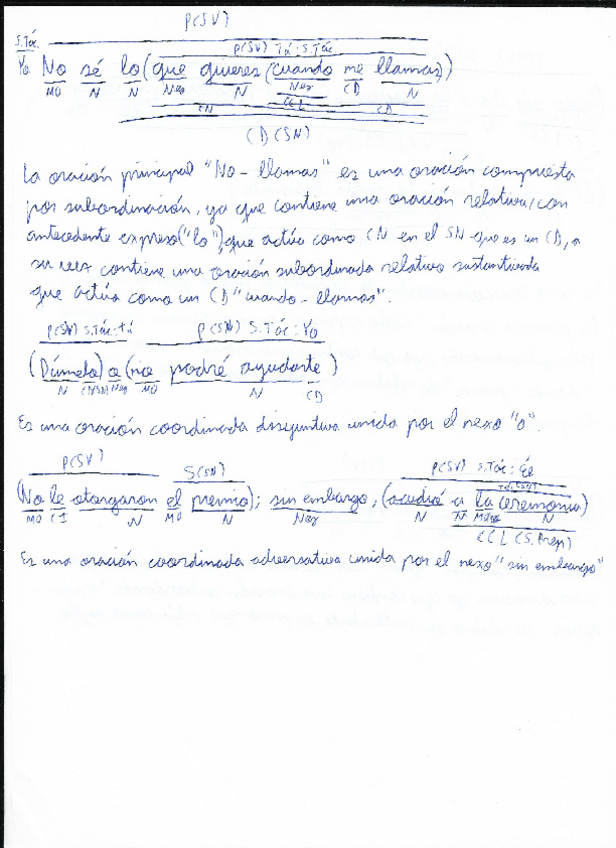 P(SV)
S.Tác P(SV) Tú: S.Tác
Yo No sé lo (que quieres (cuando me llamas))
MO N N Nex N Nex CD N
CN CCL CD
CD (SN)
La oración principal "No - llamas" es una oración compuesta
por subordinación, ya que contiene una oración relativa, con
antecedente expreso ("lo"), que actúa como CN en el SN que es un CD, a
su vez contiene una oración subordinada relativo sustantivada
que actúa como un CD "cuando - llamas".
P(SV) S.Tác: tú P(SN) S.Tác: Yo
(Dámelo) o (no podré ayudarte)
N CI/CD Nex MO N CD
Es una oración coordinada disyuntiva unida por el nexo "o".
P(SV) S(SN) P(SV) S.Tác: Él
(No le otorgaron el premio); sin embargo, (acudió a la ceremonia)
MO CI N MO N Nex N N
CCL (S.Prep)
Es una oración coordinada adversativa unida por el nexo "sin embargo"